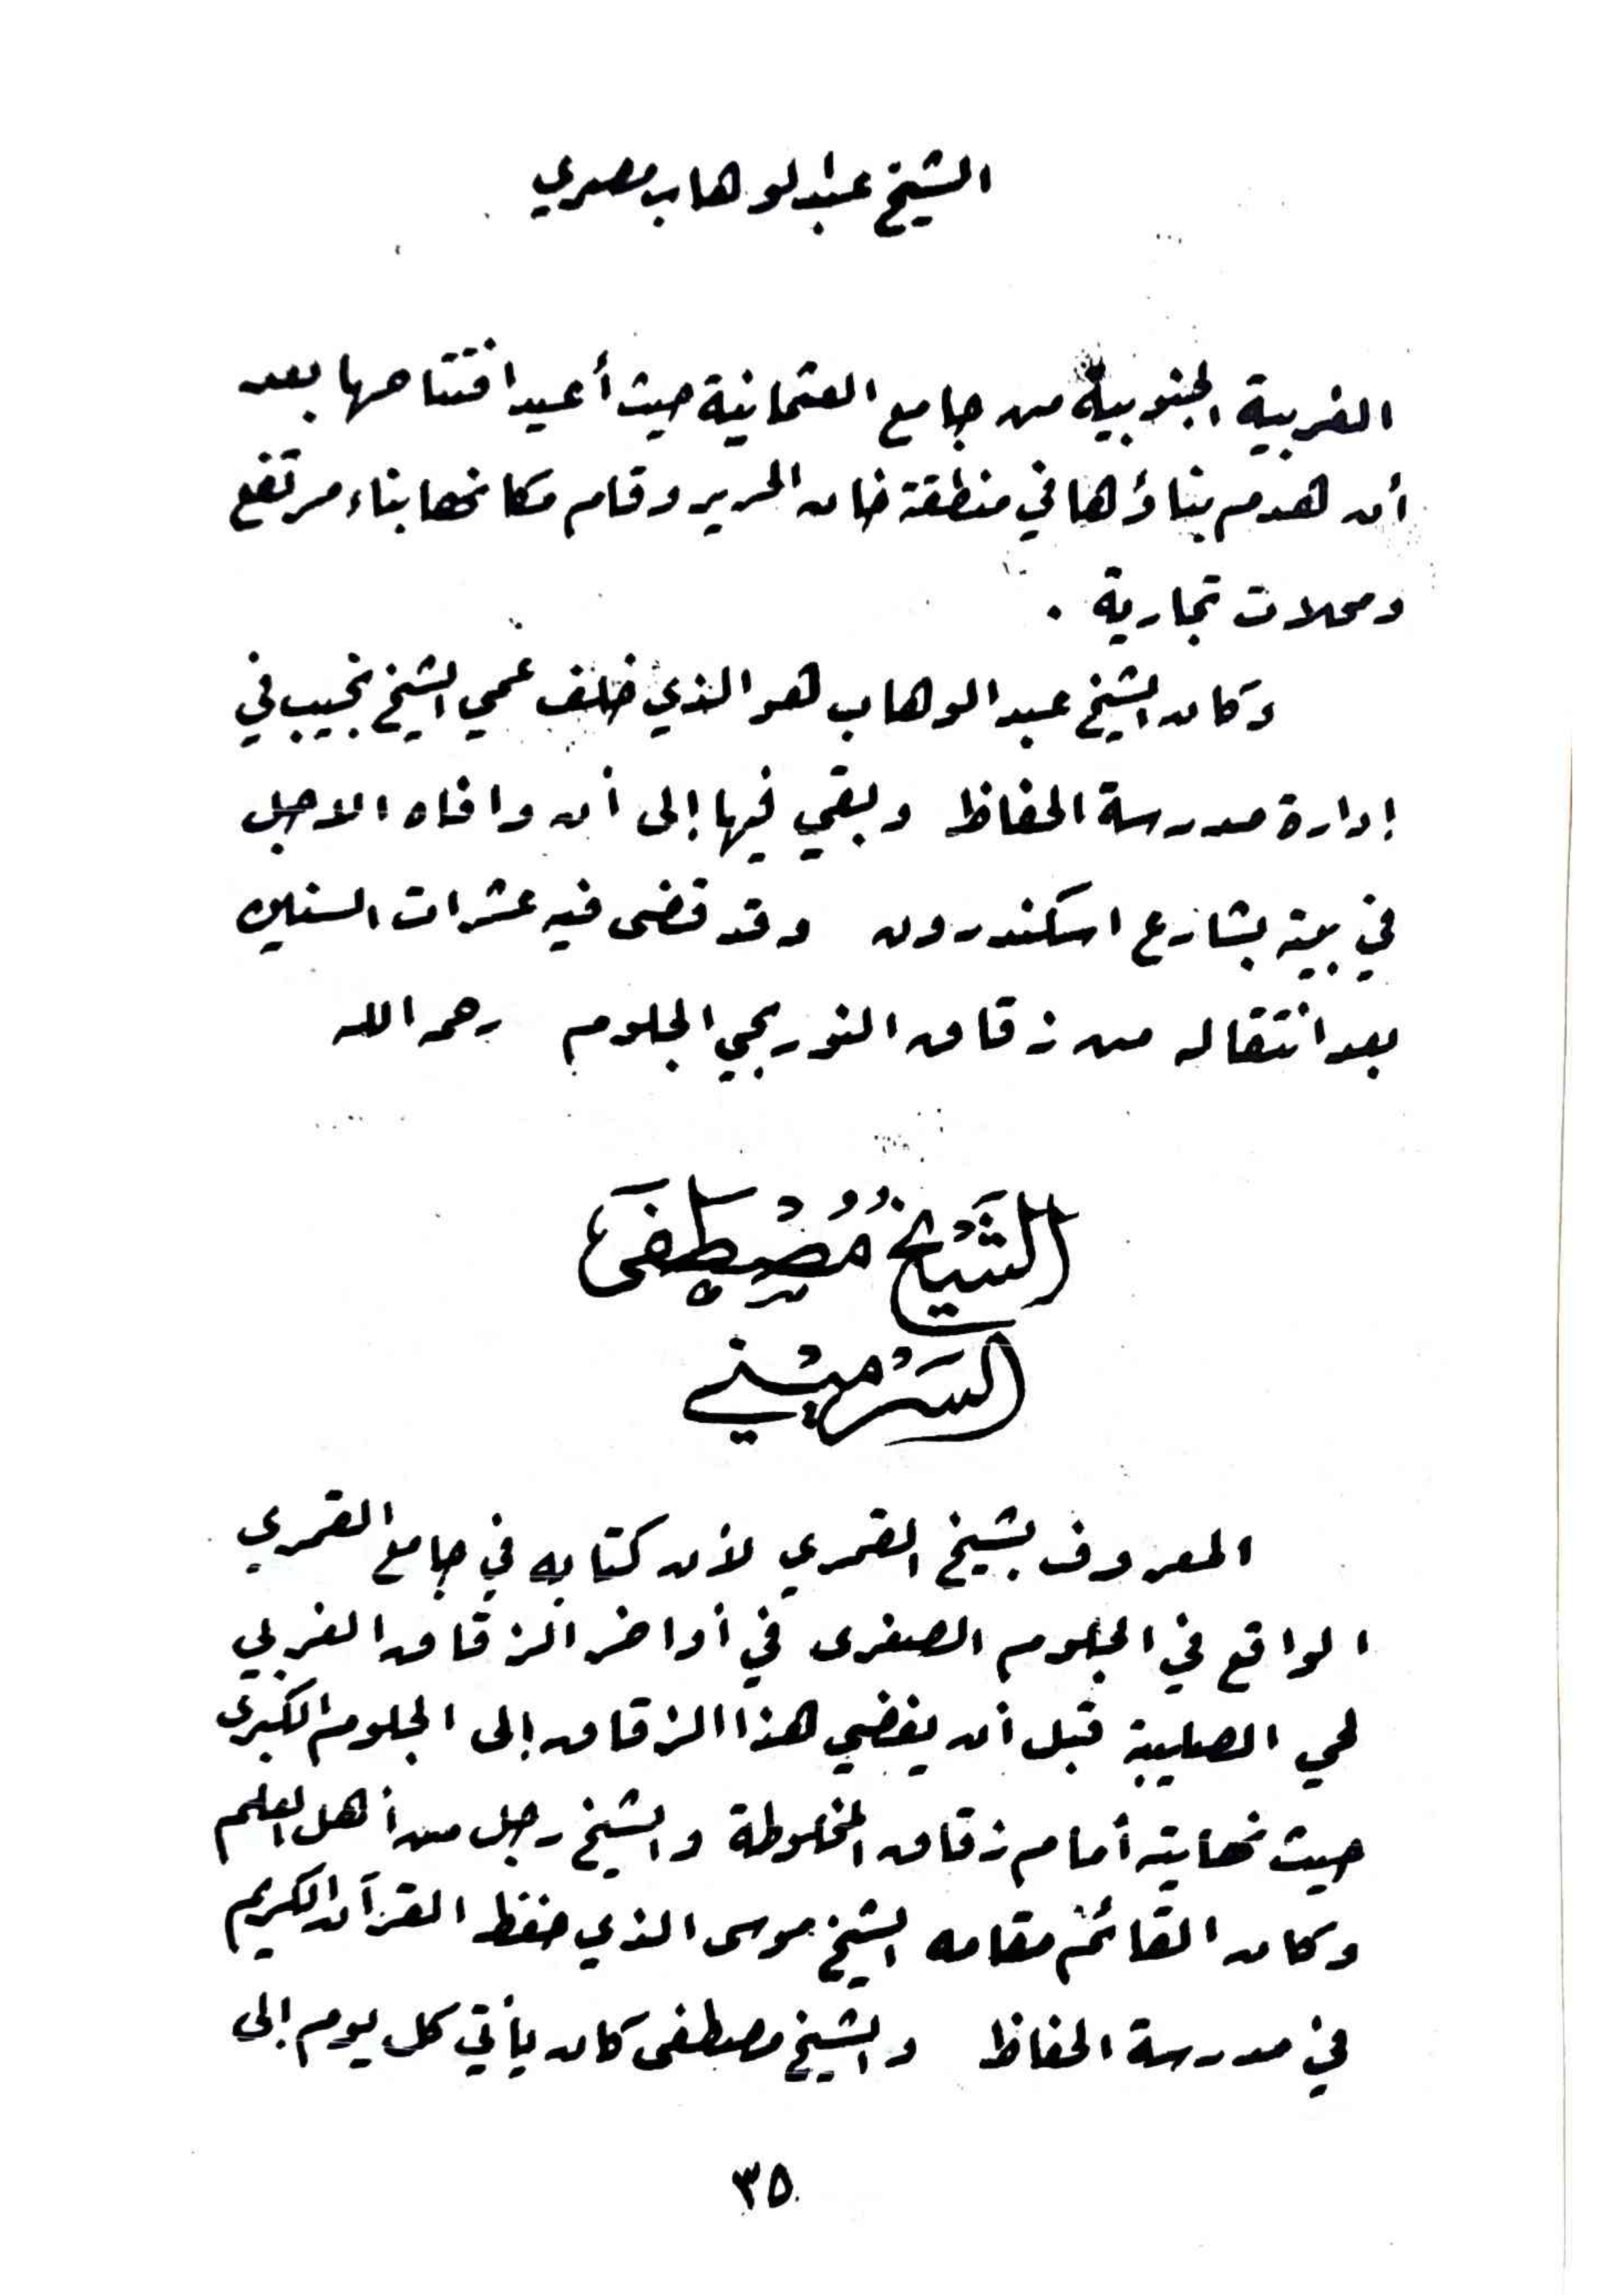 الشيخ عبد الوهاب مصري
الغربية الجنوبية من جامع العثمانية حيث أعيد افتتاحها بعد
أن هدم بناؤها في منطقة خان الحرير وقام مكانها بناء مرتفع
ومحلات تجارية .
وكان الشيخ عبد الوهاب هو الذي خلف عمي الشيخ نجيب في
إدارة مدرسة الحفاظ وبقي فيها إلى أن وافاه الاجل
في بيته بشارع اسكندرون وقد قضى فيه عشرات السنين
بعد انتقاله من زقاق النور بحي الجلوم رحمه الله
الشَّيْخُ مُصْطَفَى
السَّرْمِيْني
المعروف بشيخ القمري لأن كتابه في جامع القمري
الواقع في الجلوم الصغرى في أواخر الزقاق الغربي
لحي الصليبة قبل أن يفضي هذا الزقاق إلى الجلوم الكبرى
حيث نهايته أمام زقاق المخلوطة والشيخ رجل من أهل العلم
وكان القائم مقامه الشيخ موسى الذي حفظ القرآن الكريم
في مدرسة الحفاظ والشيخ مصطفى كان يأتي كل يوم إلى
٣٥